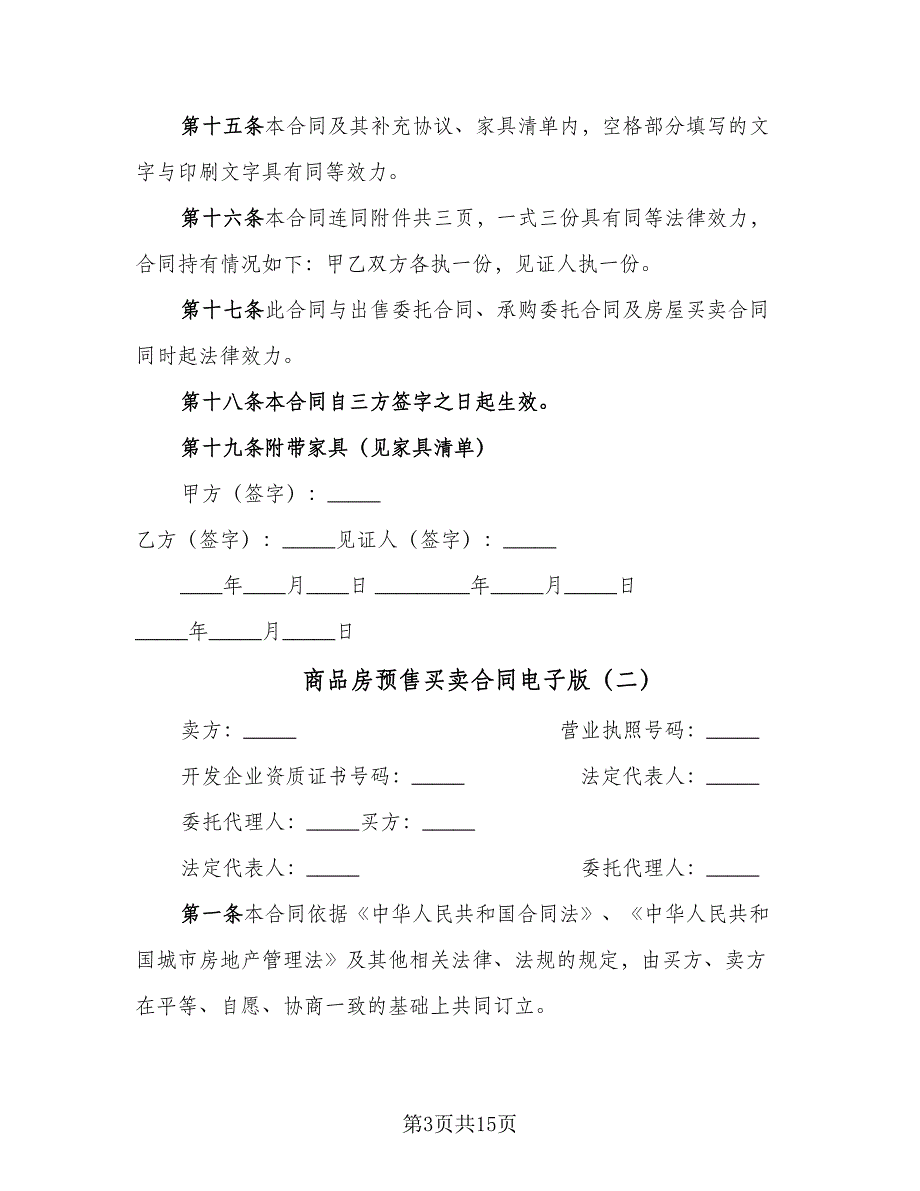 第十五条本合同及其补充协议、家具清单内，空格部分填写的文
字与印刷文字具有同等效力。
第十六条本合同连同附件共三页，一式三份具有同等法律效力，
合同持有情况如下：甲乙双方各执一份，见证人执一份。
第十七条此合同与出售委托合同、承购委托合同及房屋买卖合同
同时起法律效力。
第十八条本合同自三方签字之日起生效。
第十九条附带家具（见家具清单）
甲方（签字）：_____
乙方（签字）：_____见证人（签字）：_____
____年____月____日 _________年_____月_____日
_____年_____月_____日
商品房预售买卖合同电子版（二）
卖方：_____ 营业执照号码：_____
开发企业资质证书号码：_____ 法定代表人：_____
委托代理人：_____买方：_____
法定代表人：_____ 委托代理人：_____
第一条本合同依据《中华人民共和国合同法》、《中华人民共和
国城市房地产管理法》及其他相关法律、法规的规定，由买方、卖方
在平等、自愿、协商一致的基础上共同订立。
第3页共15页